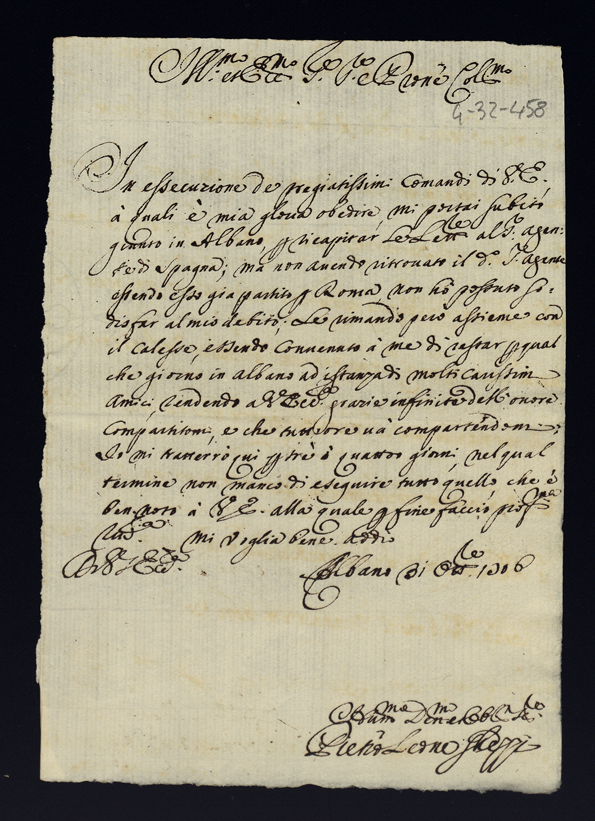 Ill.mo et Ecc.mo S.re S.re e Pron̄e Col.mo
G-32-458
In essecuzione de pregiatissimi Comandi di V.E.
à quali è mia gloria obedire, mi portai subito
giunto in Albano, p ricapitar Le Lett.re al S. agen-
te di Spagna; ma non avendo ritrovato il d.o S. Agente
essendo esso gia partito p Roma, non hò possuto so-
disfar al mio debito; Le rimando però assieme con
il Calesse, essendo Convenuto à me di restar p qual
che giorno in Albano ad istanza di molti Carissimi
Amici, rendendo a V. Ecc. grazie infinite dell'onore
Compartitomi, e che tutt'ore và compartendomi;
Io mi tratterrò qui p trè ò quattro giorni, nel qual
termine non manco di eseguire tutto quello, che è
ben noto à V.E. alla quale p fine faccio prof.ma
mi voglia bene. Addio
Di V. Ecc.
Albano 31 Ott.re 1706
Pietro Leone